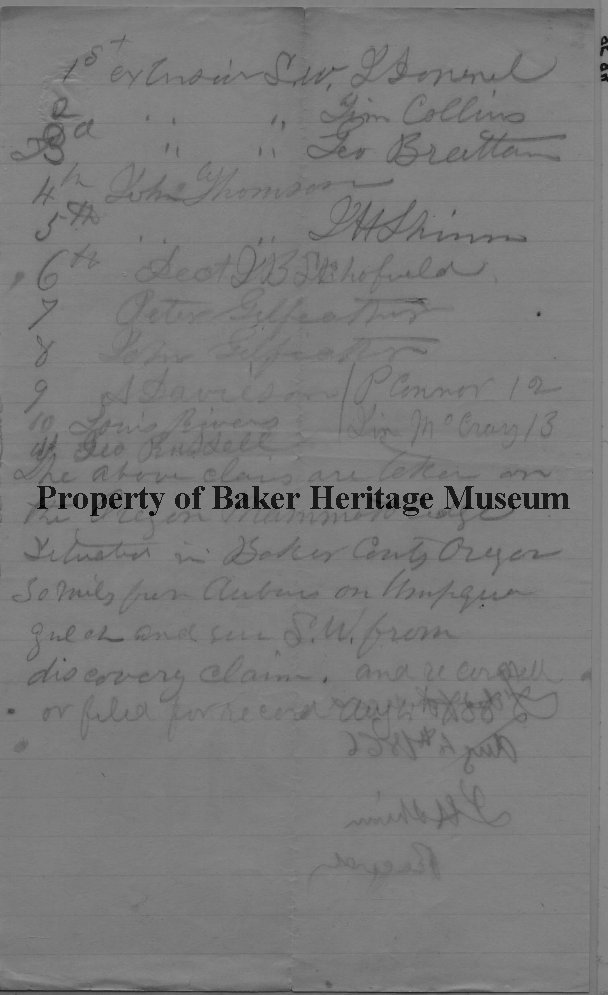 1st extension S.W. T Donenel
2 " " Jim Collins
3d " " Geo Brattan
4th John Thomson
5th " " T H Shinn
6th Scot J B Schofield
7 Peter Gilfeather
8 John Gilfeather
9 S Davidson / P Connor 12
10 Louis Rivers / Jim McCrary 13
11 Geo Russell
The above claims are taken on
Property of Baker Heritage Museum
the Oregon Mammoth Ledge
Situated in Baker County Oregon
miles from Auburn on Umpqua
gulch and run S.W. from
discovery claim. and recorded
or filed for record Aug
Aug 1866
T H Shinn